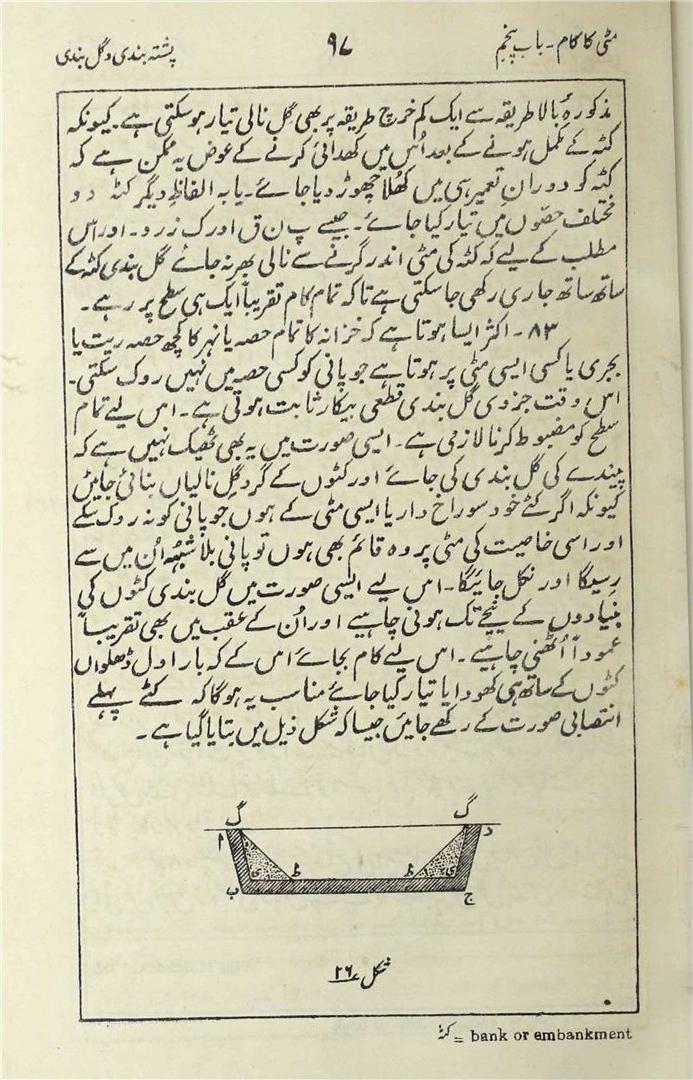 مٹی کا کام۔ باب پنجم
۹۷
پشتہ بندی و گل بندی
مذکورہٴ بالا طریقہ سے ایک کم خرچ طریقہ پر بھی گِل نالی تیار ہوسکتی ہے۔ کیونکہ
کٹہ کے مکمل ہونے کے بعد اُس میں کھدائی کرنے کے عوض یہ ممکن ہے کہ
کٹہ کو دورانِ تعمیر ہی میں کھُلا چھوڑ دیا جائے۔ یا بہ الفاظِ دیگر کٹہ دو
مختلف حصّوں میں تیار کیا جائے۔ جیسے پ ن ق اور ک ز ر و۔ اور اس
مطلب کے لیے کہ کٹہ کی مٹی اندر گرنے سے نالی بھر نہ جائے گل بندی کٹہ کے
ساتھ ساتھ جاری رکھی جاسکتی ہے تاکہ تمام کام تقریباً ایک ہی سطح پر رہے۔
۸۳۔ اکثر ایسا ہوتا ہے کہ خزانہ کا تمام حصہ یا نہر کا کچھ حصہ ریت یا
بجری یا کسی ایسی مٹی پر ہوتا ہے جو پانی کو کسی حصہ میں نہیں روک سکتی۔
اس وقت جزوی گل بندی قطعی بیکار ثابت ہوتی ہے۔ اس لیے تمام
سطح کو مضبوط کرنا لازمی ہے۔ ایسی صورت میں یہ بھی ٹھیک نہیں ہے کہ
پیندے کی گل بندی کی جائے اور کٹوں کے گرد گِل نالیاں بنائی جائیں
کیونکہ اگر کٹے خود سوراخ دار یا ایسی مٹی کے ہوں جو پانی کو نہ روک سکے
اور اسی خاصیت کی مٹی پر وہ قائم بھی ہوں تو پانی بلا شبہٗہ اُن میں سے
رِسیگا اور نکل جائیگا۔ اس لیے ایسی صورت میں گل بندی کٹوں کی
بنیادوں کے نیچے تک ہونی چاہیے اور اُن کے عقب میں بھی تقریباً
عموداً اُٹھنی چاہیے۔ اس لیے کام بجائے اس کے کہ بار اول ڈھلواں
کٹوں کے ساتھ ہی کھودا یا تیار کیا جائے مناسب یہ ہوگا کہ کٹے پہلے
انتصابی صورت کے رکھے جائیں جیسا کہ شکل ذیل میں بتایا گیا ہے۔
گ گ
ا د
ی ط ط ی
ب ج
شکل ۲۶
کٹہ = bank or embankment